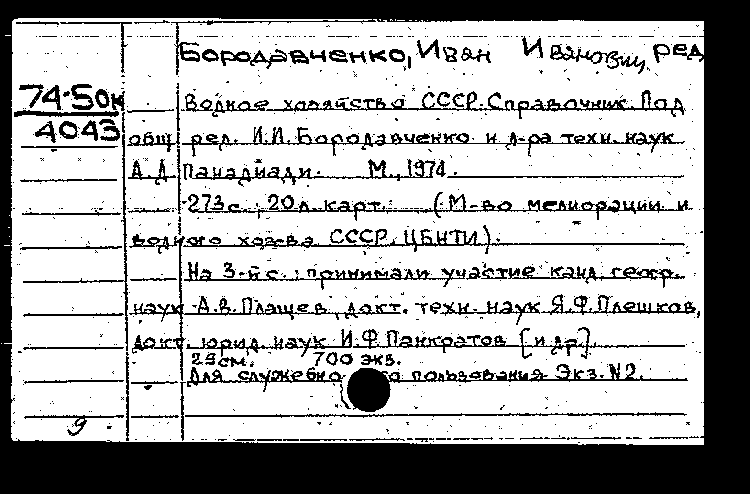 Бородавченко, Иван Иванович, ред
74-5ок
4043
Водное хозяйство СССР. Справочник. Под
общ. ред. И.И. Бородавченко и д-ра техн. наук
А.Д. Панадиади. М., 1974.
273с., 20л. карт. (М-во мелиорации и
водного хоз-ва СССР. ЦБНТИ).
На 3-й с.: принимали участие канд. геогр.
наук А.В. Плащев, докт. техн. наук Я.Ф. Плешков,
докт. юрид. наук И.Ф. Панкратов [и др].
29см. 700 экз.
Для служебно го пользования Экз. №2.
9